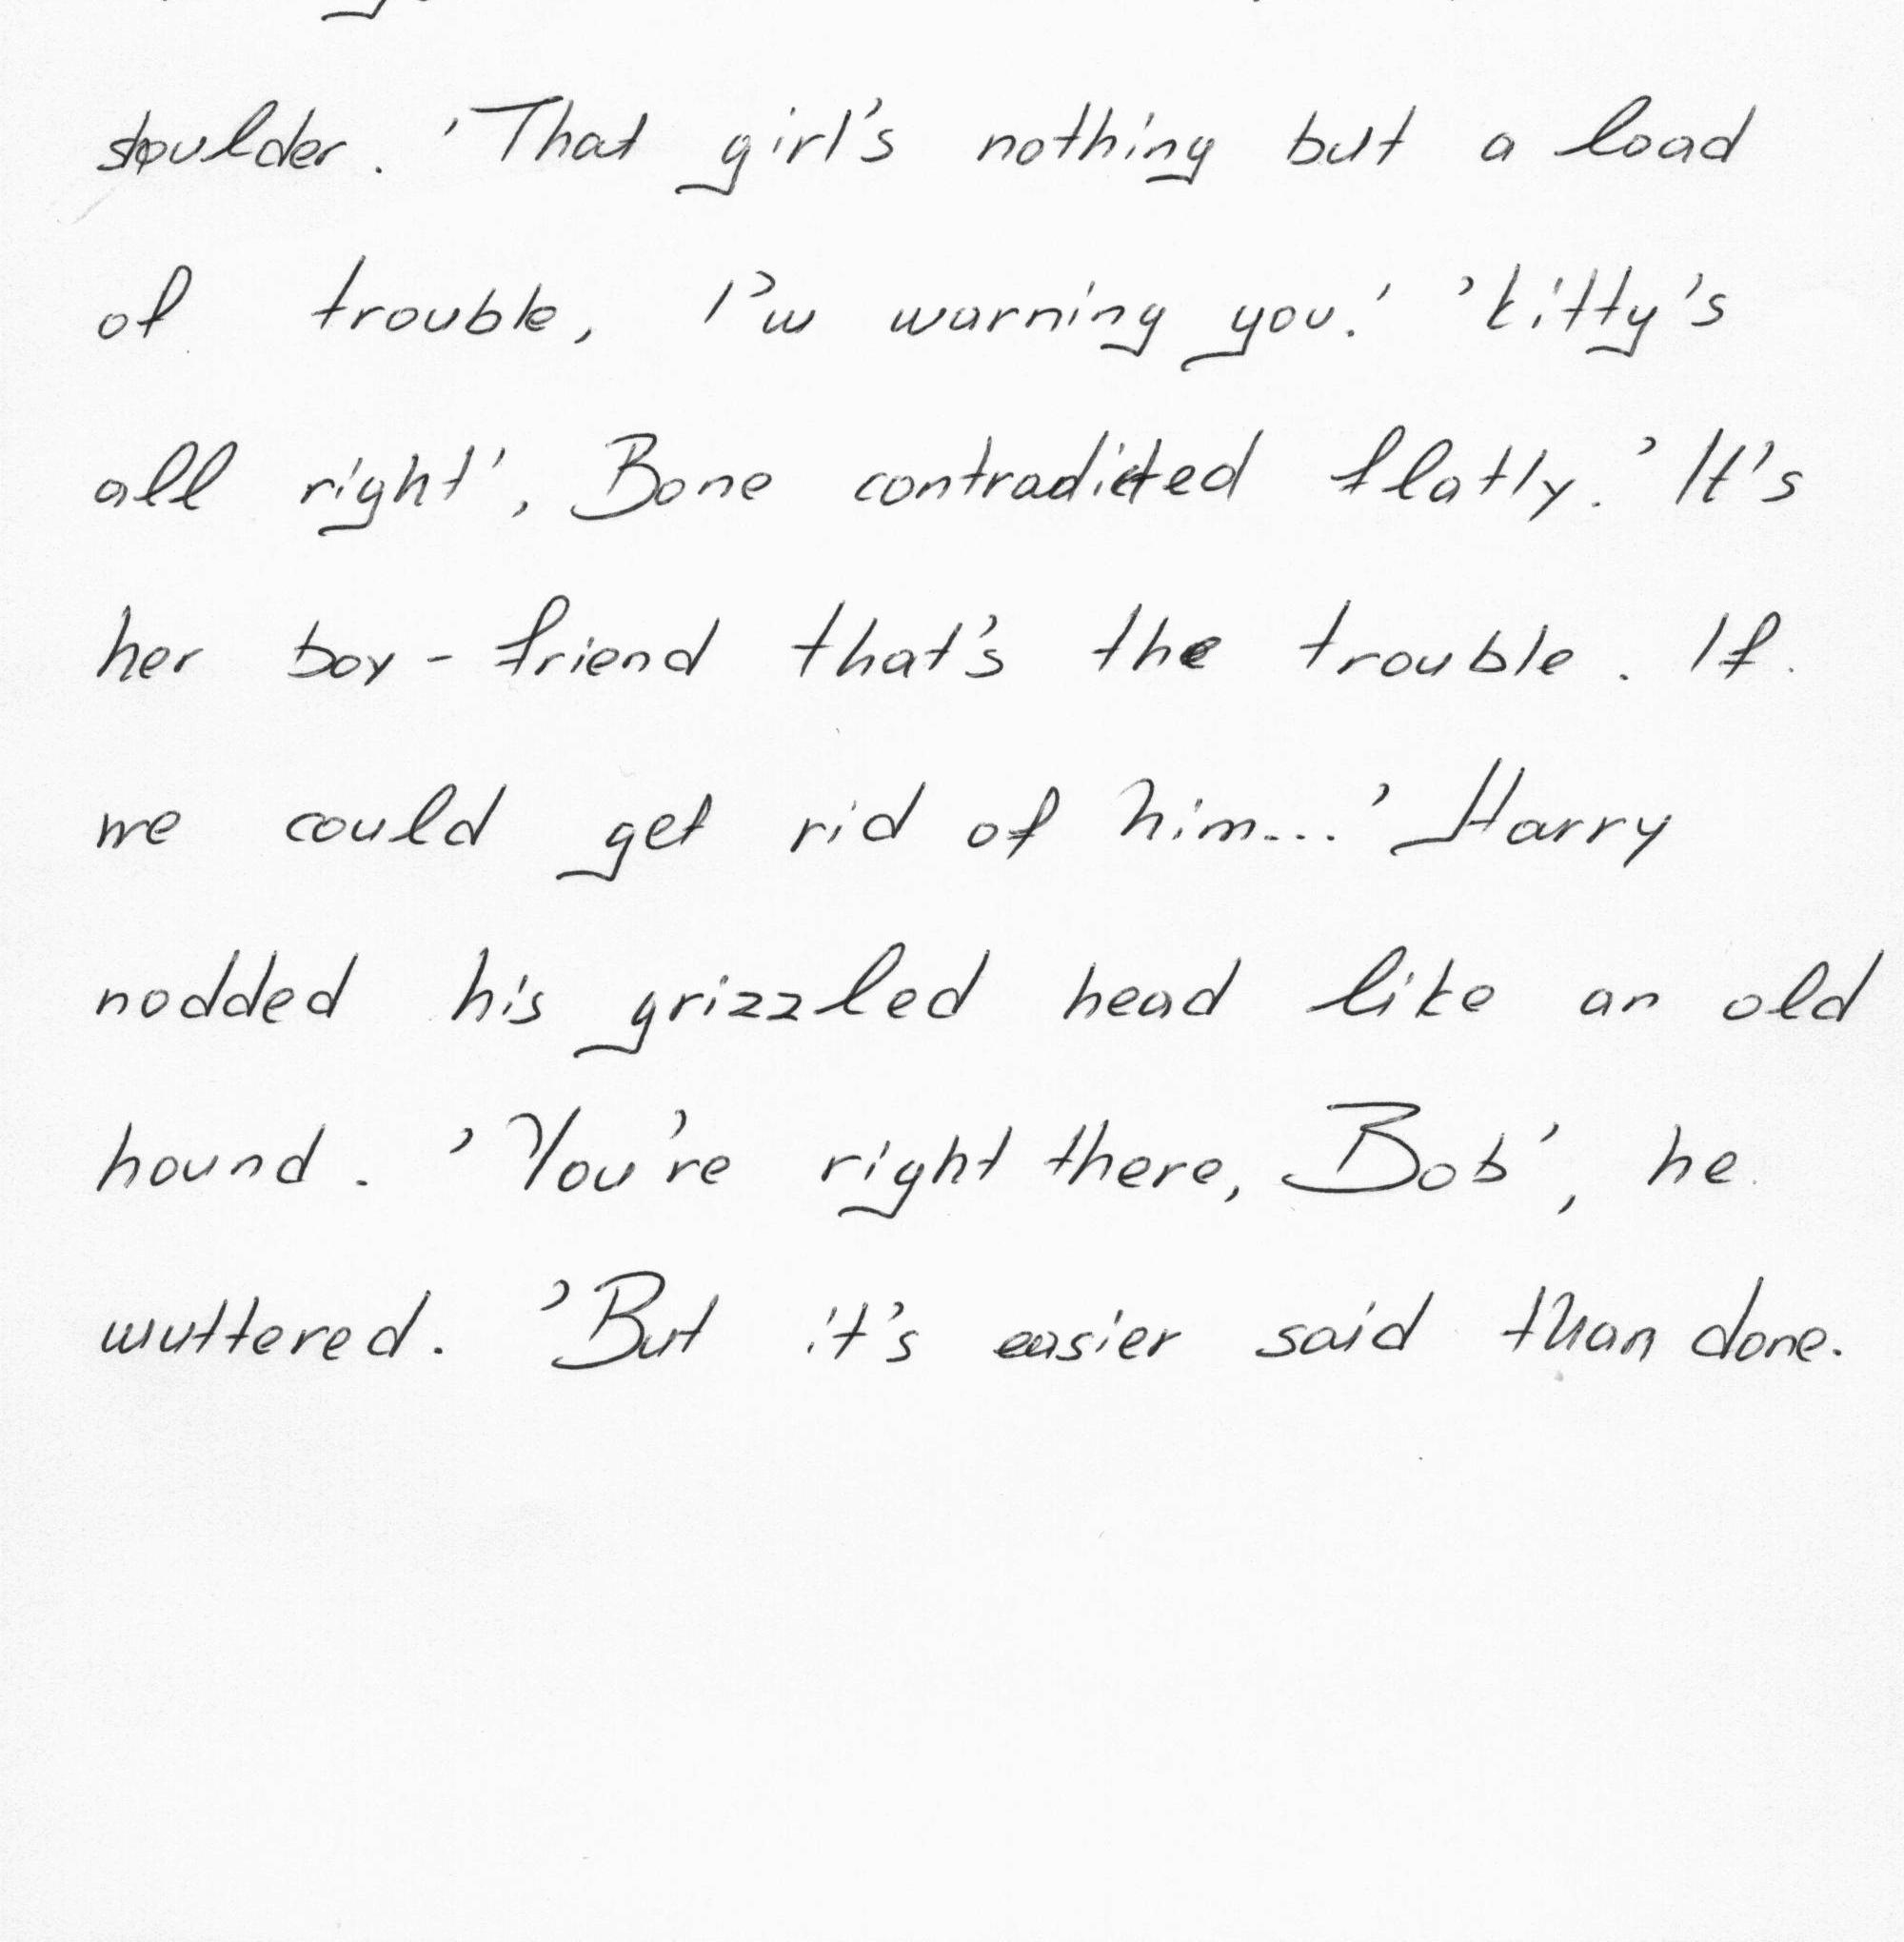 shoulder. 'That girl's nothing but a load
of trouble, I'm warning you.' 'Kitty's
all right', Bone contradicted flatly. 'It's
her boy-friend that's the trouble. If
we could get rid of him...' Harry
nodded his grizzled head like an old
hound. 'You're right there, Bob', he
muttered. 'But it's easier said than done.